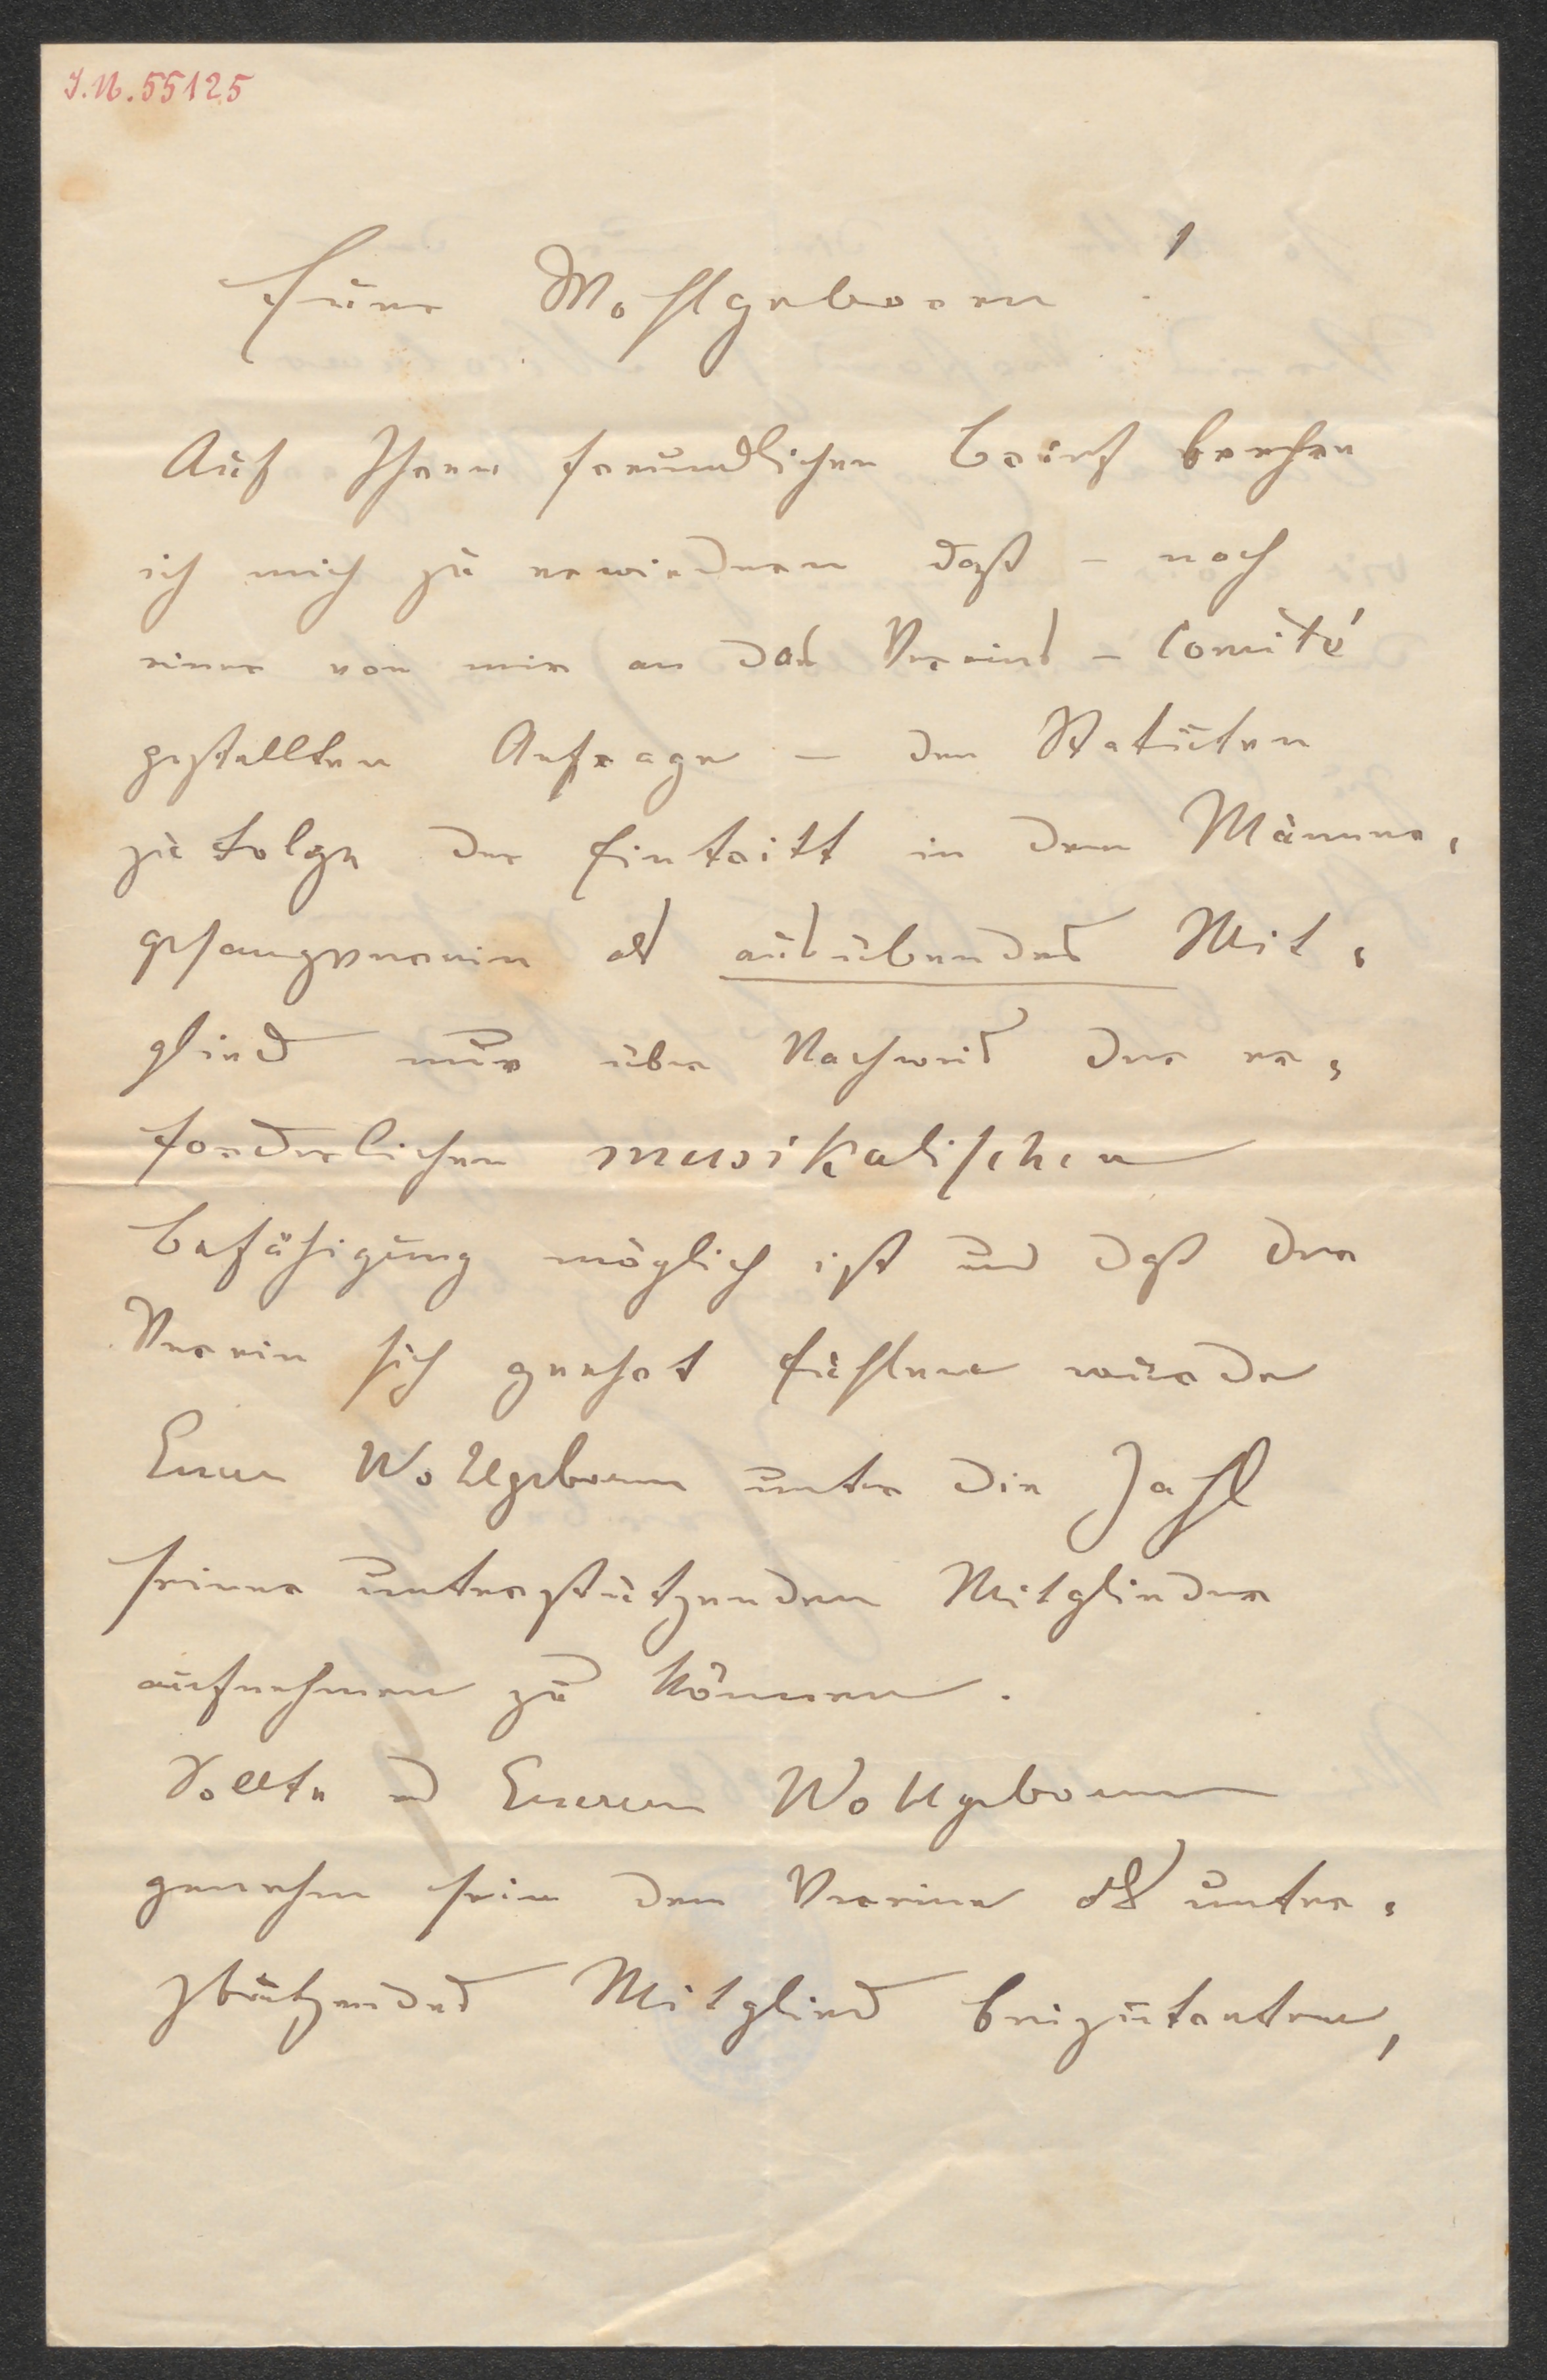 J.N. 55125
Euer Wohlgeboren!
Auf Ihren freundlichen Brief beehre
ich mich zu erwiedern daß – nach
einer von mir an das Vereins-Comité
gestellten Anfrage – den Statuten
zu Folge der Eintritt in den Männer,
gesangverein als ausübendes Mit,
glied nur über Nachweis der er,
forderlichen musikalischen
Befähigung möglich ist und daß der
Verein sich geehrt fühlen würde
Euer Wohlgeboren unter die Zahl
seiner unterstützenden Mitglieder
aufnehmen zu können.
Sollte es Eueren Wohlgeboren
genehm sein dem Vereine als unter,
stützendes Mitglied beizutreten,